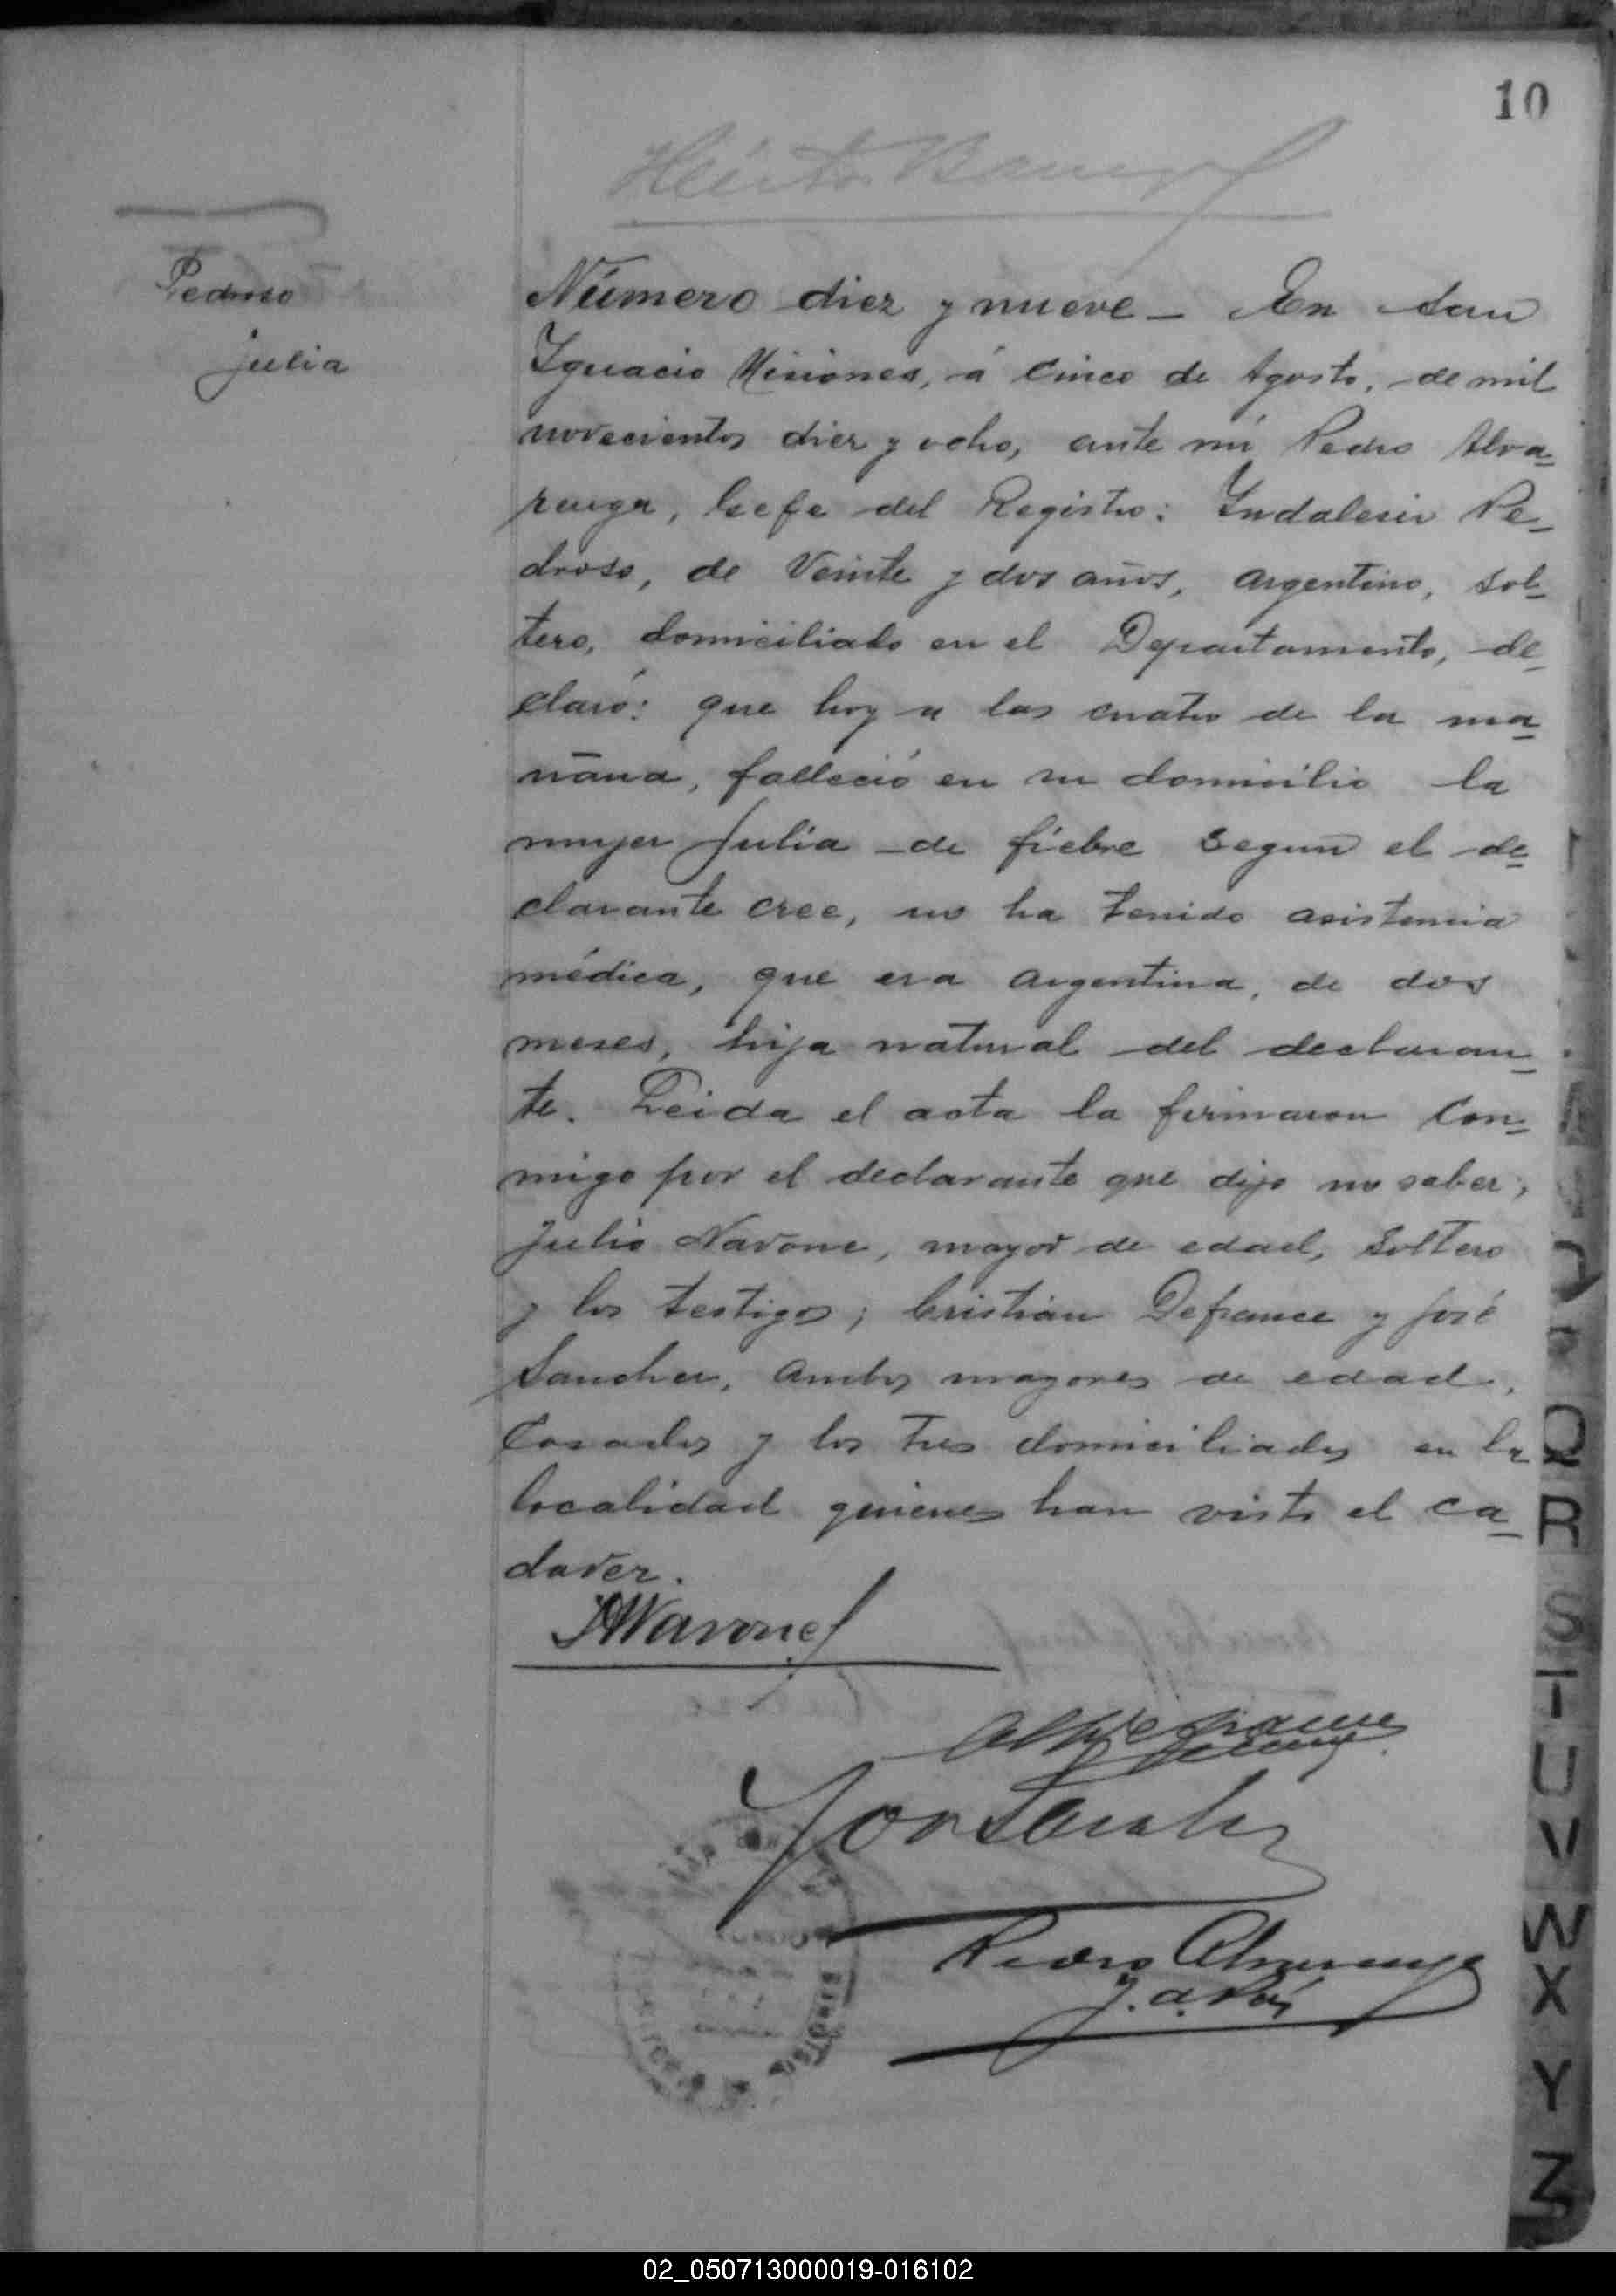 10
Pedroso
Julia
Número diez y nueve — En San
Ygnacio Misiones, á cinco de Agosto, de mil
novecientos diez y ocho, ante mí Pedro Alva=
renga, Gefe del Registro: Yndalecio Pe=
droso, de Veinte y dos años, argentino, sol=
tero, domiciliado en el Departamento, de=
claró: que hoy a las cuatro de la ma=
ñana, falleció en su domicilio la
mujer Julia de fiebre segun el de=
clarante cree, no ha tenido asistencia
médica, que era argentina, de dos
meses, hija natural del declaran=
te. Leida el acta la firmaron con=
migo por el declarante que dijo no saber,
Julio Navone, mayor de edad, soltero
y los testigos; Cristian Defrance y José
Sanchez, ambos mayores de edad,
Casados y los tres domiciliados en la
localidad quienes han visto el ca=
daver.
JNavone
José Sanchez
Pedro Alvarenga
Q
R
S
T
U
V
W
X
Y
Z
02_050713000019-016102